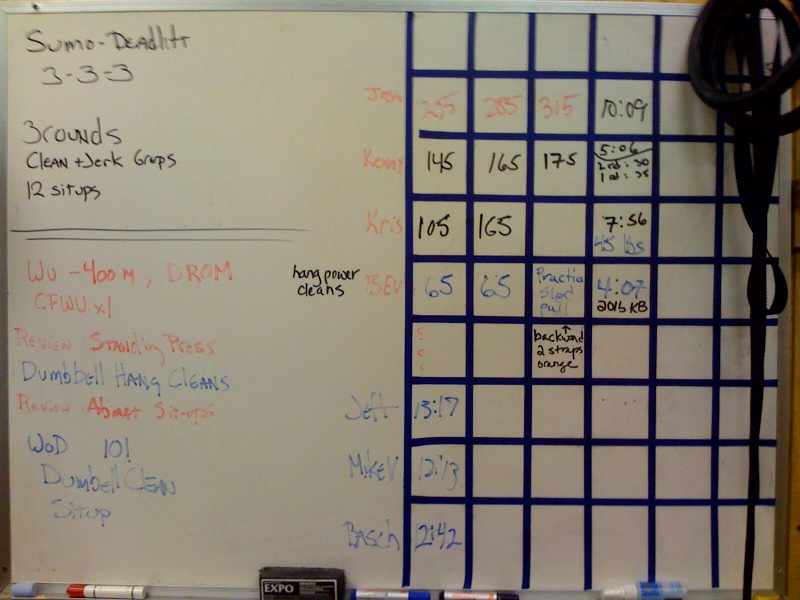 Sumo-Deadlift
3-3-3
3rounds
Clean + Jerk Grups
12 situps
Wu - 400m, DROM
CFWU x1
Review Standing Press
Dumbbell Hang Cleans
Review Abmat Sit-ups
WOD 10!
Dumbell Clean
Situp
Josh 255 285 315 10:09
Kenny 145 165 175 5:06
2 rd : 30
1 rd : 35
Kris 105 165 7:56
45 lbs
hang power
cleans
65 65 Practice
Sled
pull
4:07
20lb KB
backward
2 straps
orange
Jeff 13:17
Mike V 12:13
Basch 12:42
EXPO